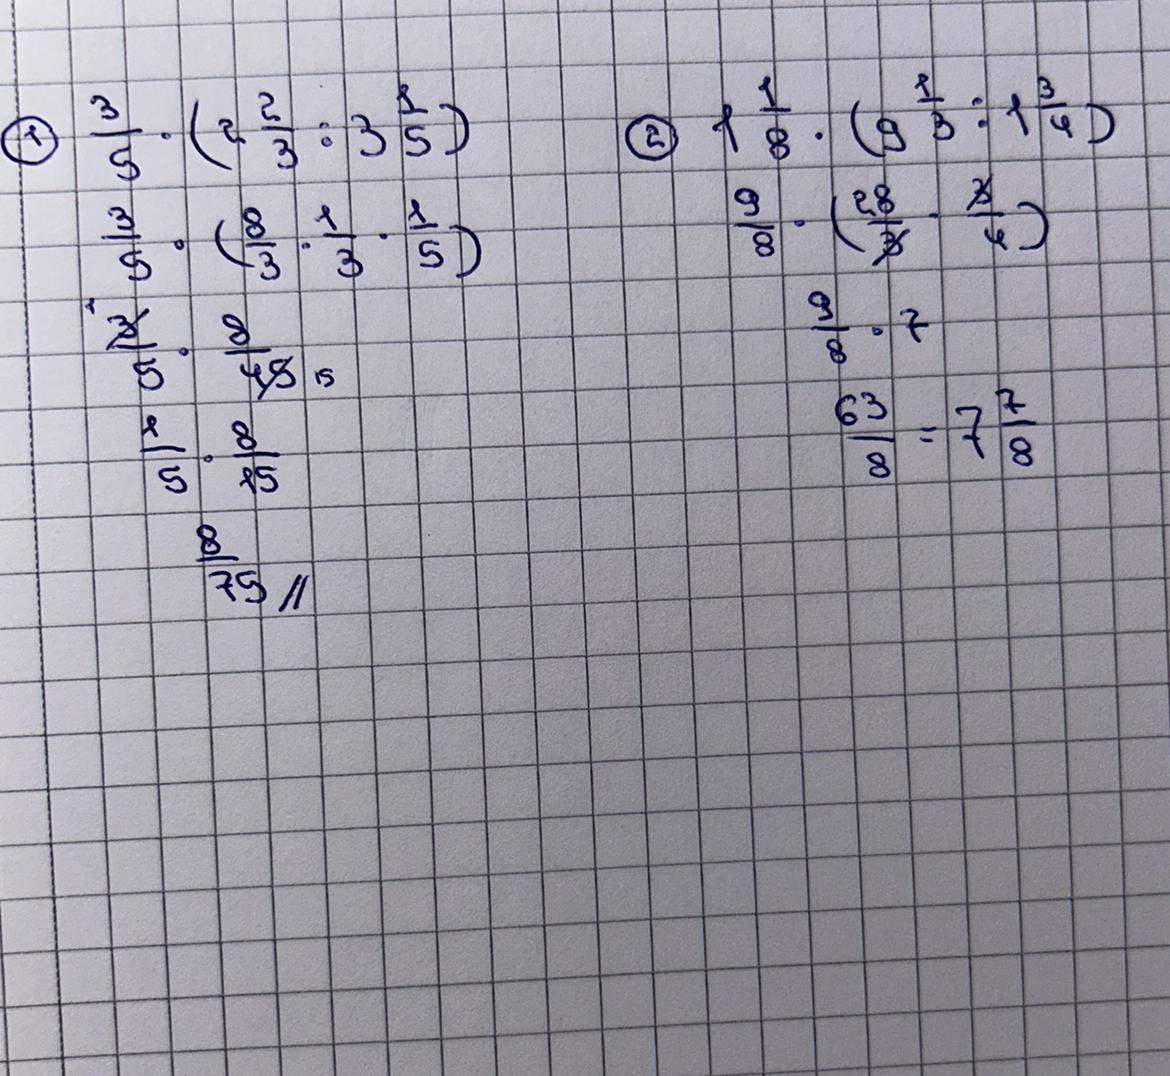 ① 3/5 · (2 2/3 : 3 1/5)
3/5 · (8/3 · 1/3 · 1/5)
1 3/5 · 8/45 15
1/5 · 8/15
8/75 //
② 1 1/8 · (9 1/3 : 1 3/4)
9/8 · (28/3 · 3/4)
9/8 · 7
63/8 = 7 7/8